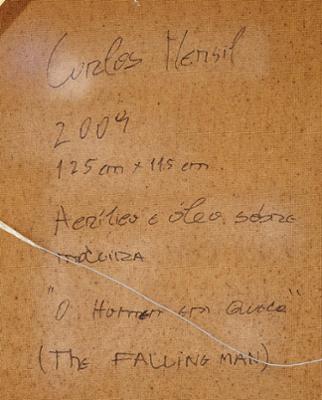 Carlos Mensil
2009
125 cm x 115 cm
Acrílico e óleo sobre
madeira
"O Homem em Queda"
(The FALLING MAN)